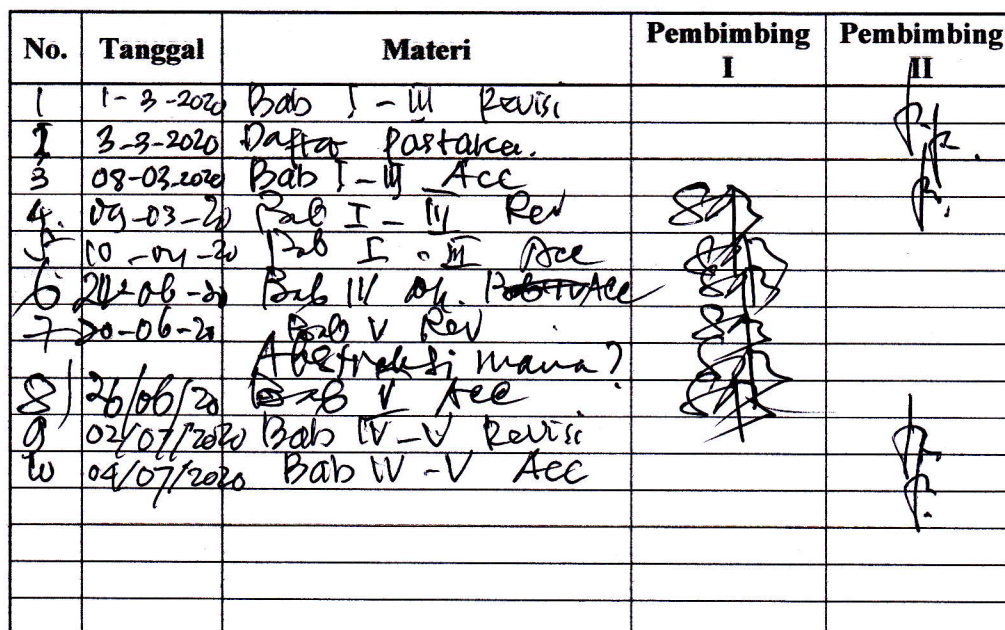 No. Tanggal Materi Pembimbing I Pembimbing II
1 1-3-2020 Bab I - III Revisi
2 3-3-2020 Daftar Pustaka.
3 08-03-2020 Bab I - III Acc
4. 09-03-20 Bab I - III Rev
5 10-04-20 Bab I - III Acc
6 06-20 Bab IV ok. Acc
7 20-06-20 Bab V Rev
Abstraksi mana?
8) 26/06/20 Bab V Acc
9 02/07/2020 Bab IV - V Revisi
10 04/07/2020 Bab IV - V Acc